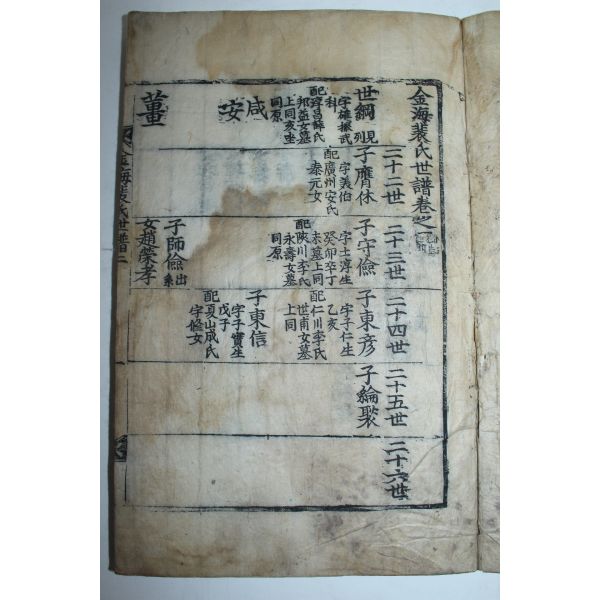 金海裴氏世譜卷之
世綱見列
字雄振武
科
配淳昌薛氏
邦益女墓
上同亥坐
同原
咸安
董
二十二世
子膺休
字美伯
配廣州安氏
泰元女
二十三世
子守儉
字士淳生
癸卯卒丁
未墓上同
配陜川李氏
永壽女墓
同原
子師儉出系
女趙榮孝
二十四世
子東彦
字子仁生
乙亥
配仁川李氏
世南女墓
上同
子東信
字子實生
戊子
配夏山成氏
字脩女
二十五世
子綸褧
二十六世
金海裴氏世譜二